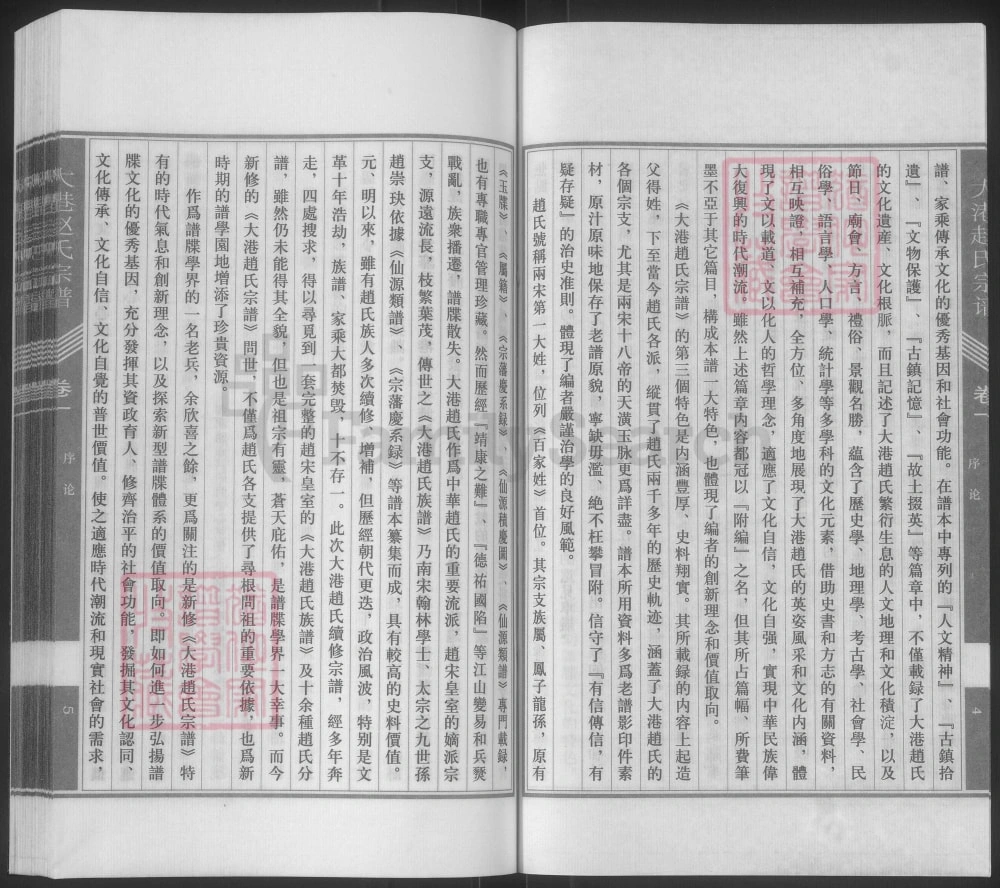 大港趙氏宗譜
卷一
序論
4
譜、家乘傳承文化的優秀基因和社會功能。在譜本中專列的『人文精神』、『古鎮拾
遺』、『文物保護』、『古鎮記憶』、『故土掇英』等篇章中，不僅載録了大港趙氏
的文化遺産、文化根脈，而且記述了大港趙氏繁衍生息的人文地理和文化積淀，以及
節日、廟會、方言、禮俗、景觀名勝，蘊含了歷史學、地理學、考古學、社會學、民
俗學、語言學、人口學、統計學等多學科的文化元素，借助史書和方志的有關資料，
相互映證，相互補充，全方位、多角度地展現了大港趙氏的英姿風采和文化内涵，體
現了文以載道、文以化人的哲學理念，適應了文化自信，文化自強，實現中華民族偉
大復興的時代潮流。雖然上述篇章内容都冠以『附編』之名，但其所占篇幅、所費筆
墨不亞于其它篇目，構成本譜一大特色，也體現了編者的創新理念和價值取向。
《大港趙氏宗譜》的第三個特色是内涵豐厚、史料翔實。其所載録的内容上起造
父得姓，下至當今趙氏各派，縱貫了趙氏兩千多年的歷史軌迹，涵蓋了大港趙氏的
各個宗支，尤其是兩宋十八帝的天潢玉脉更爲詳盡。譜本所用資料多爲老譜影印件素
材，原汁原味地保存了老譜原貌，寧缺毋濫、絶不枉攀冒附。信守了『有信傳信，有
疑存疑』的治史准則。體現了編者嚴謹治學的良好風範。
趙氏號稱兩宋第一大姓，位列《百家姓》首位。其宗支族屬、鳳子龍孫，原有
《玉牒》、《屬籍》、《宗藩慶系録》、《仙源積慶圖》、《仙源類譜》專門載録，
也有專職專官管理珍藏。然而歷經『靖康之難』、『德祐國陷』等江山變易和兵燹
戰亂，族衆播遷，譜牒散失。大港趙氏作爲中華趙氏的重要流派，趙宋皇室的嫡派宗
支，源遠流長，枝繁葉茂，傳世之《大港趙氏族譜》乃南宋翰林學士、太宗之九世孫
趙崇玦依據《仙源類譜》、《宗藩慶系録》等譜本纂集而成，具有較高的史料價值。
元、明以來，雖有趙氏族人多次續修、增補，但歷經朝代更迭，政治風波，特别是文
革十年浩劫，族譜、家乘大都焚毁，十不存一。此次大港趙氏續修宗譜，經多年奔
走，四處搜求，得以尋覓到一套完整的趙宋皇室的《大港趙氏族譜》及十余種趙氏分
譜，雖然仍未能得其全貌，但也是祖宗有靈，蒼天庇佑，是譜牒學界一大幸事。而今
新修的《大港趙氏宗譜》問世，不僅爲趙氏各支提供了尋根問祖的重要依據，也爲新
時期的譜學園地增添了珍貴資源。
作爲譜牒學界的一名老兵，余欣喜之餘，更爲關注的是新修《大港趙氏宗譜》特
有的時代氣息和創新理念，以及探索新型譜牒體系的價值取向。即如何進一步弘揚譜
牒文化的優秀基因，充分發揮其資政育人、修齊治平的社會功能，發掘其文化認同、
文化傳承、文化自信、文化自覺的普世價值。使之適應時代潮流和現實社會的需求，
大港趙氏宗譜
卷一
序論
5
FamilySearch